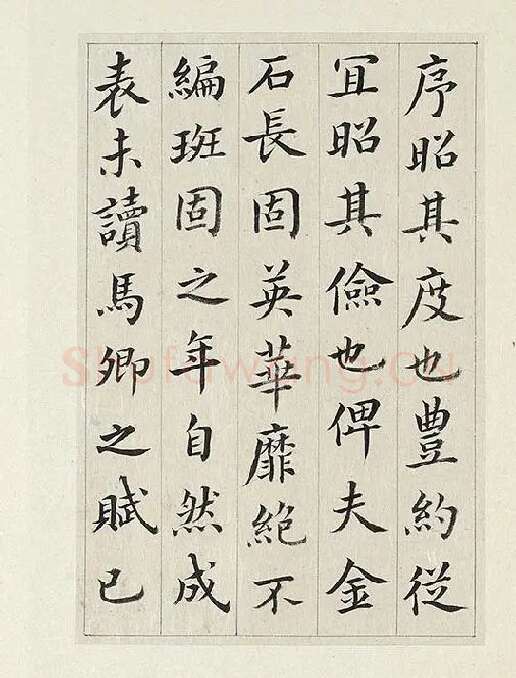 序昭其度也豊約従
冝昭其儉也俾夫金
石長固英華靡絶不
編班固之年自然成
表未讀馬卿之賦已
Shufawang.cn